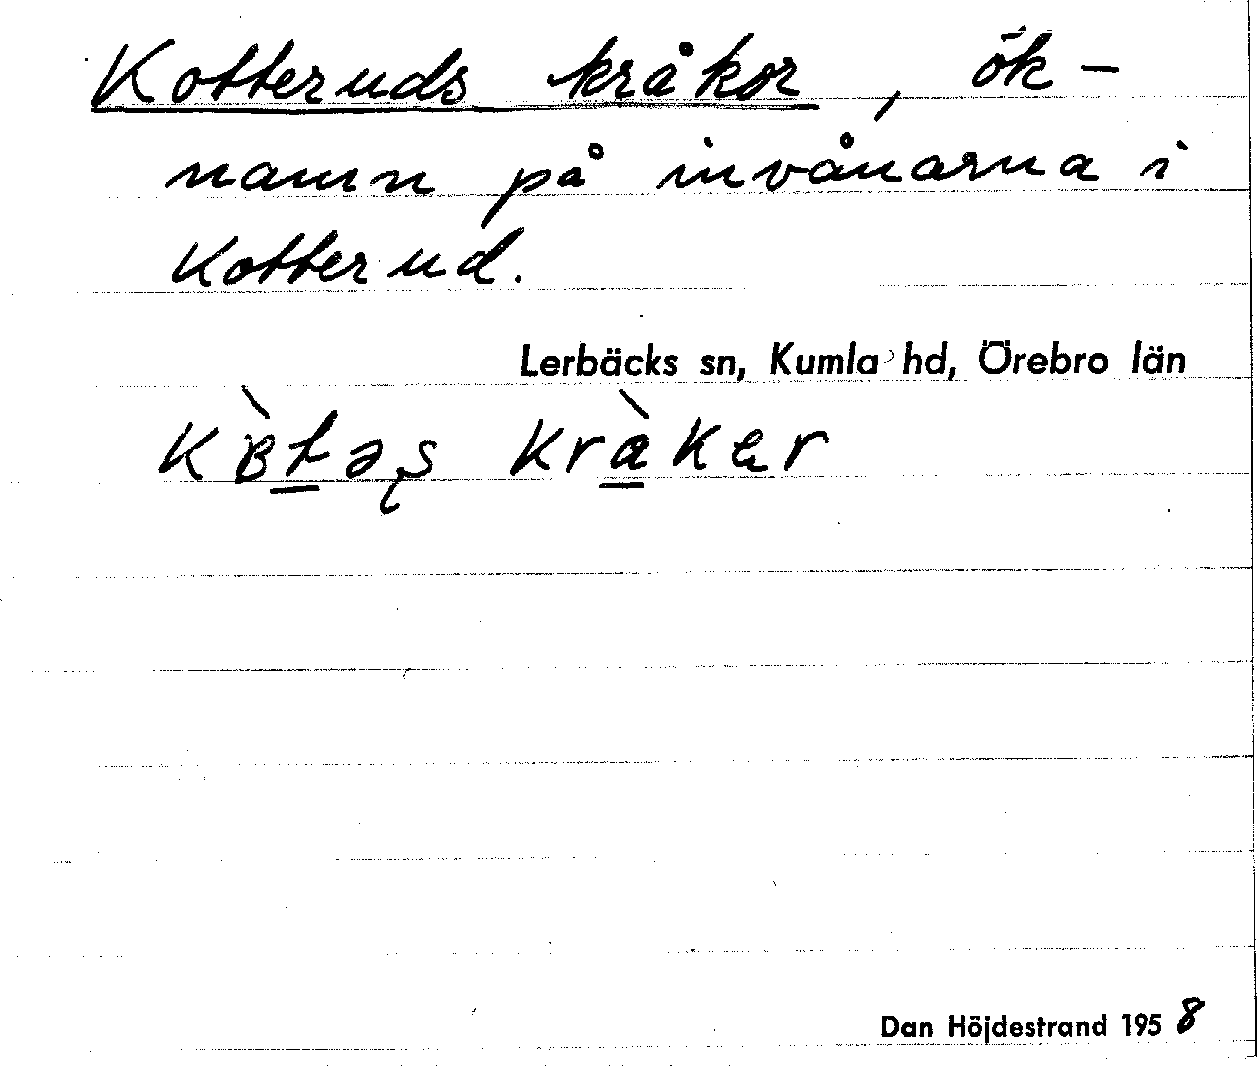 Kotteruds kråkor, ök-
namn på invånarna i
Kotterud.
Lerbäcks sn, Kumla hd, Örebro län
Dan Höjdestrand 1958